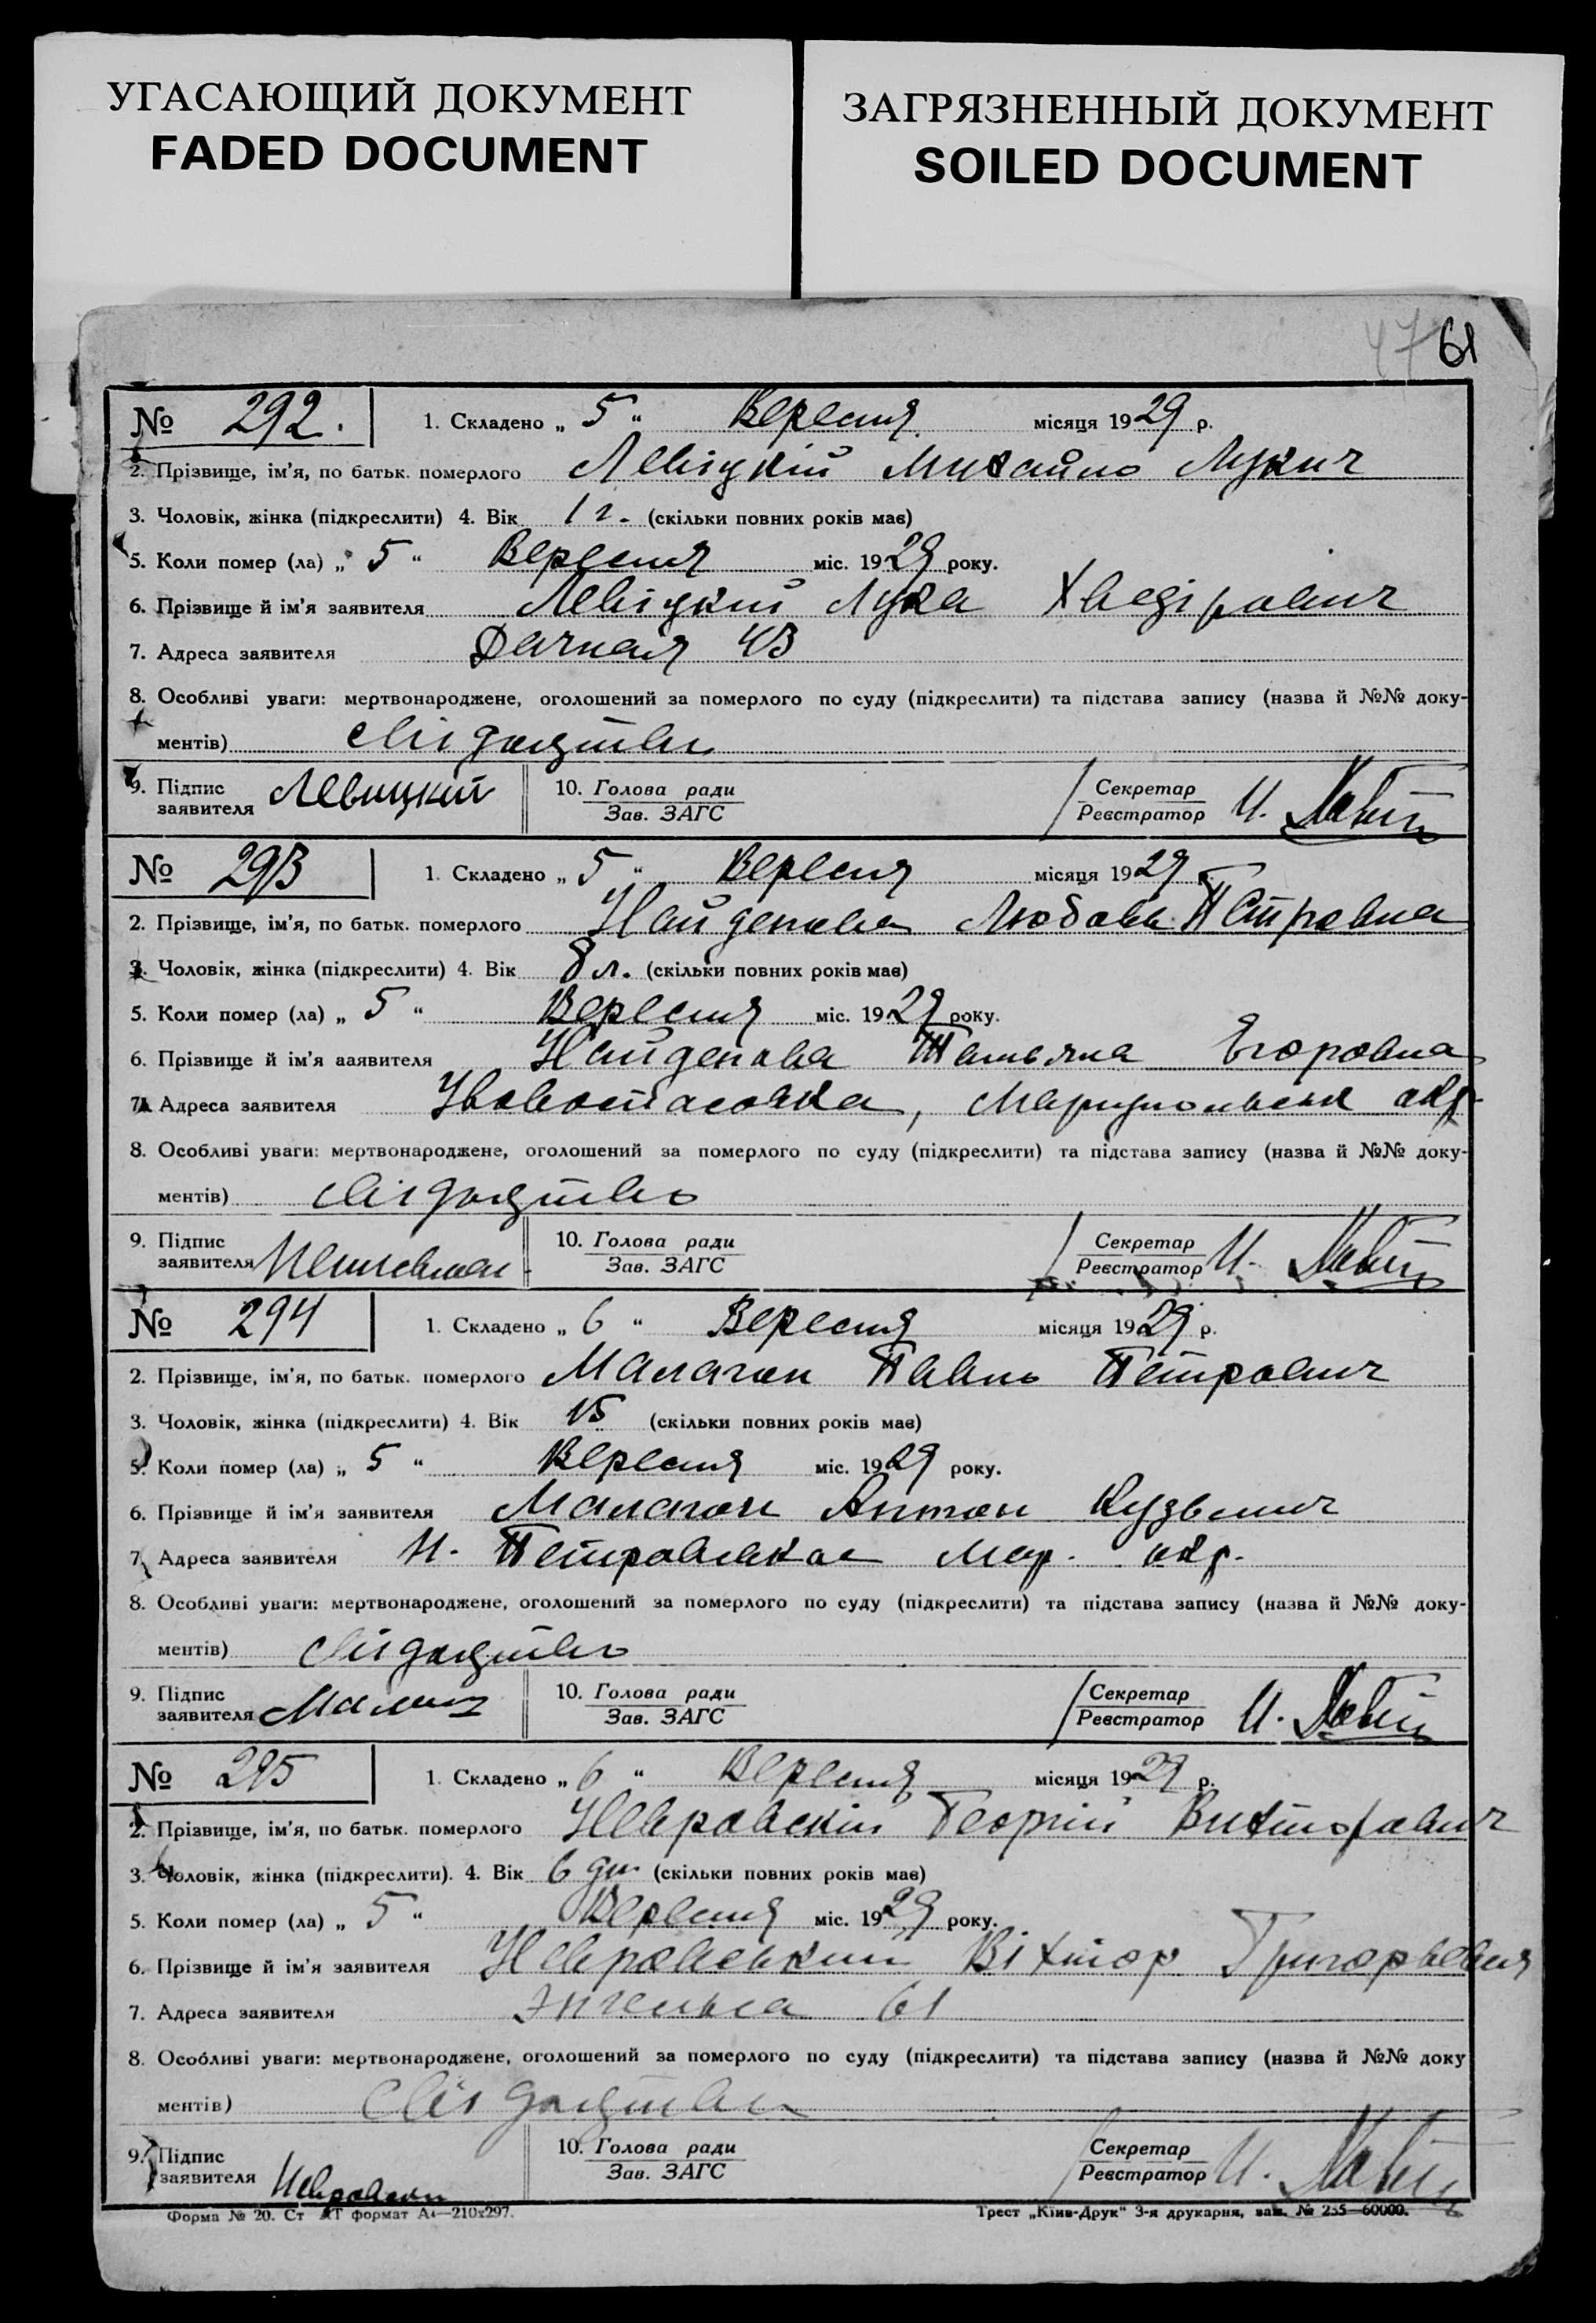 УГАСАЮЩИЙ ДОКУМЕНТ
FADED DOCUMENT
ЗАГРЯЗНЕННЫЙ ДОКУМЕНТ
SOILED DOCUMENT
47 61
№ 292. 1. Складено „ 5 “ Вересня місяця 1929 р.
2. Прізвище, ім'я, по батьк. померлого Левіцкій Михайло Лукич
3. Чоловік, жінка (підкреслити) 4. Вік 1 г. (скільки повних років має)
5. Коли помер (ла) „ 5 “ Вересня міс. 1929 року.
6. Прізвище й ім'я заявителя Левіцкий Лука Хведірович
7. Адреса заявителя Дачная 43
8. Особливі уваги: мертвонароджене, оголошений за померлого по суду (підкреслити) та підстава запису (назва й №№ доку-
ментів) свідоцтво
9. Підпис заявителя Левицкий 10. Голова ради Зав. ЗАГС Секретар Реєстратор И.
№ 293 1. Складено „ 5 “ Вересня місяця 1929
2. Прізвище, ім'я, по батьк. померлого Найденова Любовь Петровна
3. Чоловік, жінка (підкреслити) 4. Вік 8 л. (скільки повних років має)
5. Коли помер (ла) „ 5 “ Вересня міс. 1929 року.
6. Прізвище й ім'я заявителя Найденова Татьяна Егоровна
7. Адреса заявителя Мариупольськ окр.
8. Особливі уваги: мертвонароджене, оголошений за померлого по суду (підкреслити) та підстава запису (назва й №№ доку-
ментів) свідоцтво
9. Підпис заявителя 10. Голова ради Зав. ЗАГС Секретар Реєстратор И.
№ 294 1. Складено „ 6 “ Вересня місяця 1929 р.
2. Прізвище, ім'я, по батьк. померлого Малагон Павло Петрович
3. Чоловік, жінка (підкреслити) 4. Вік 15 (скільки повних років має)
5. Коли помер (ла) „ 5 “ Вересня міс. 1929 року.
6. Прізвище й ім'я заявителя Малагон Антон Кузьмич
7. Адреса заявителя Н. Петровська Мар. окр.
8. Особливі уваги: мертвонароджене, оголошений за померлого по суду (підкреслити) та підстава запису (назва й №№ доку-
ментів) свідоцтво
9. Підпис заявителя 10. Голова ради Зав. ЗАГС Секретар Реєстратор И.
№ 295 1. Складено „ 6 “ Вересня місяця 1929 р.
2. Прізвище, ім'я, по батьк. померлого Невровскій Георгий Вихторович
3. Чоловік, жінка (підкреслити). 4. Вік 6 дн. (скільки повних років має)
5. Коли помер (ла) „ 5 “ Вересня міс. 1929 року.
6. Прізвище й ім'я заявителя Невровський Віхтор Григорьевич
7. Адреса заявителя Энгельса 61
8. Особливі уваги: мертвонароджене, оголошений за померлого по суду (підкреслити) та підстава запису (назва й №№ доку
ментів) свідоцтво
9. Підпис заявителя 10. Голова ради Зав. ЗАГС Секретар Реєстратор И.
Форма № 20. Ст АТ формат А4—210х297. Трест „Київ-Друк“ 3-я друкарня, зам. № 255—60000.